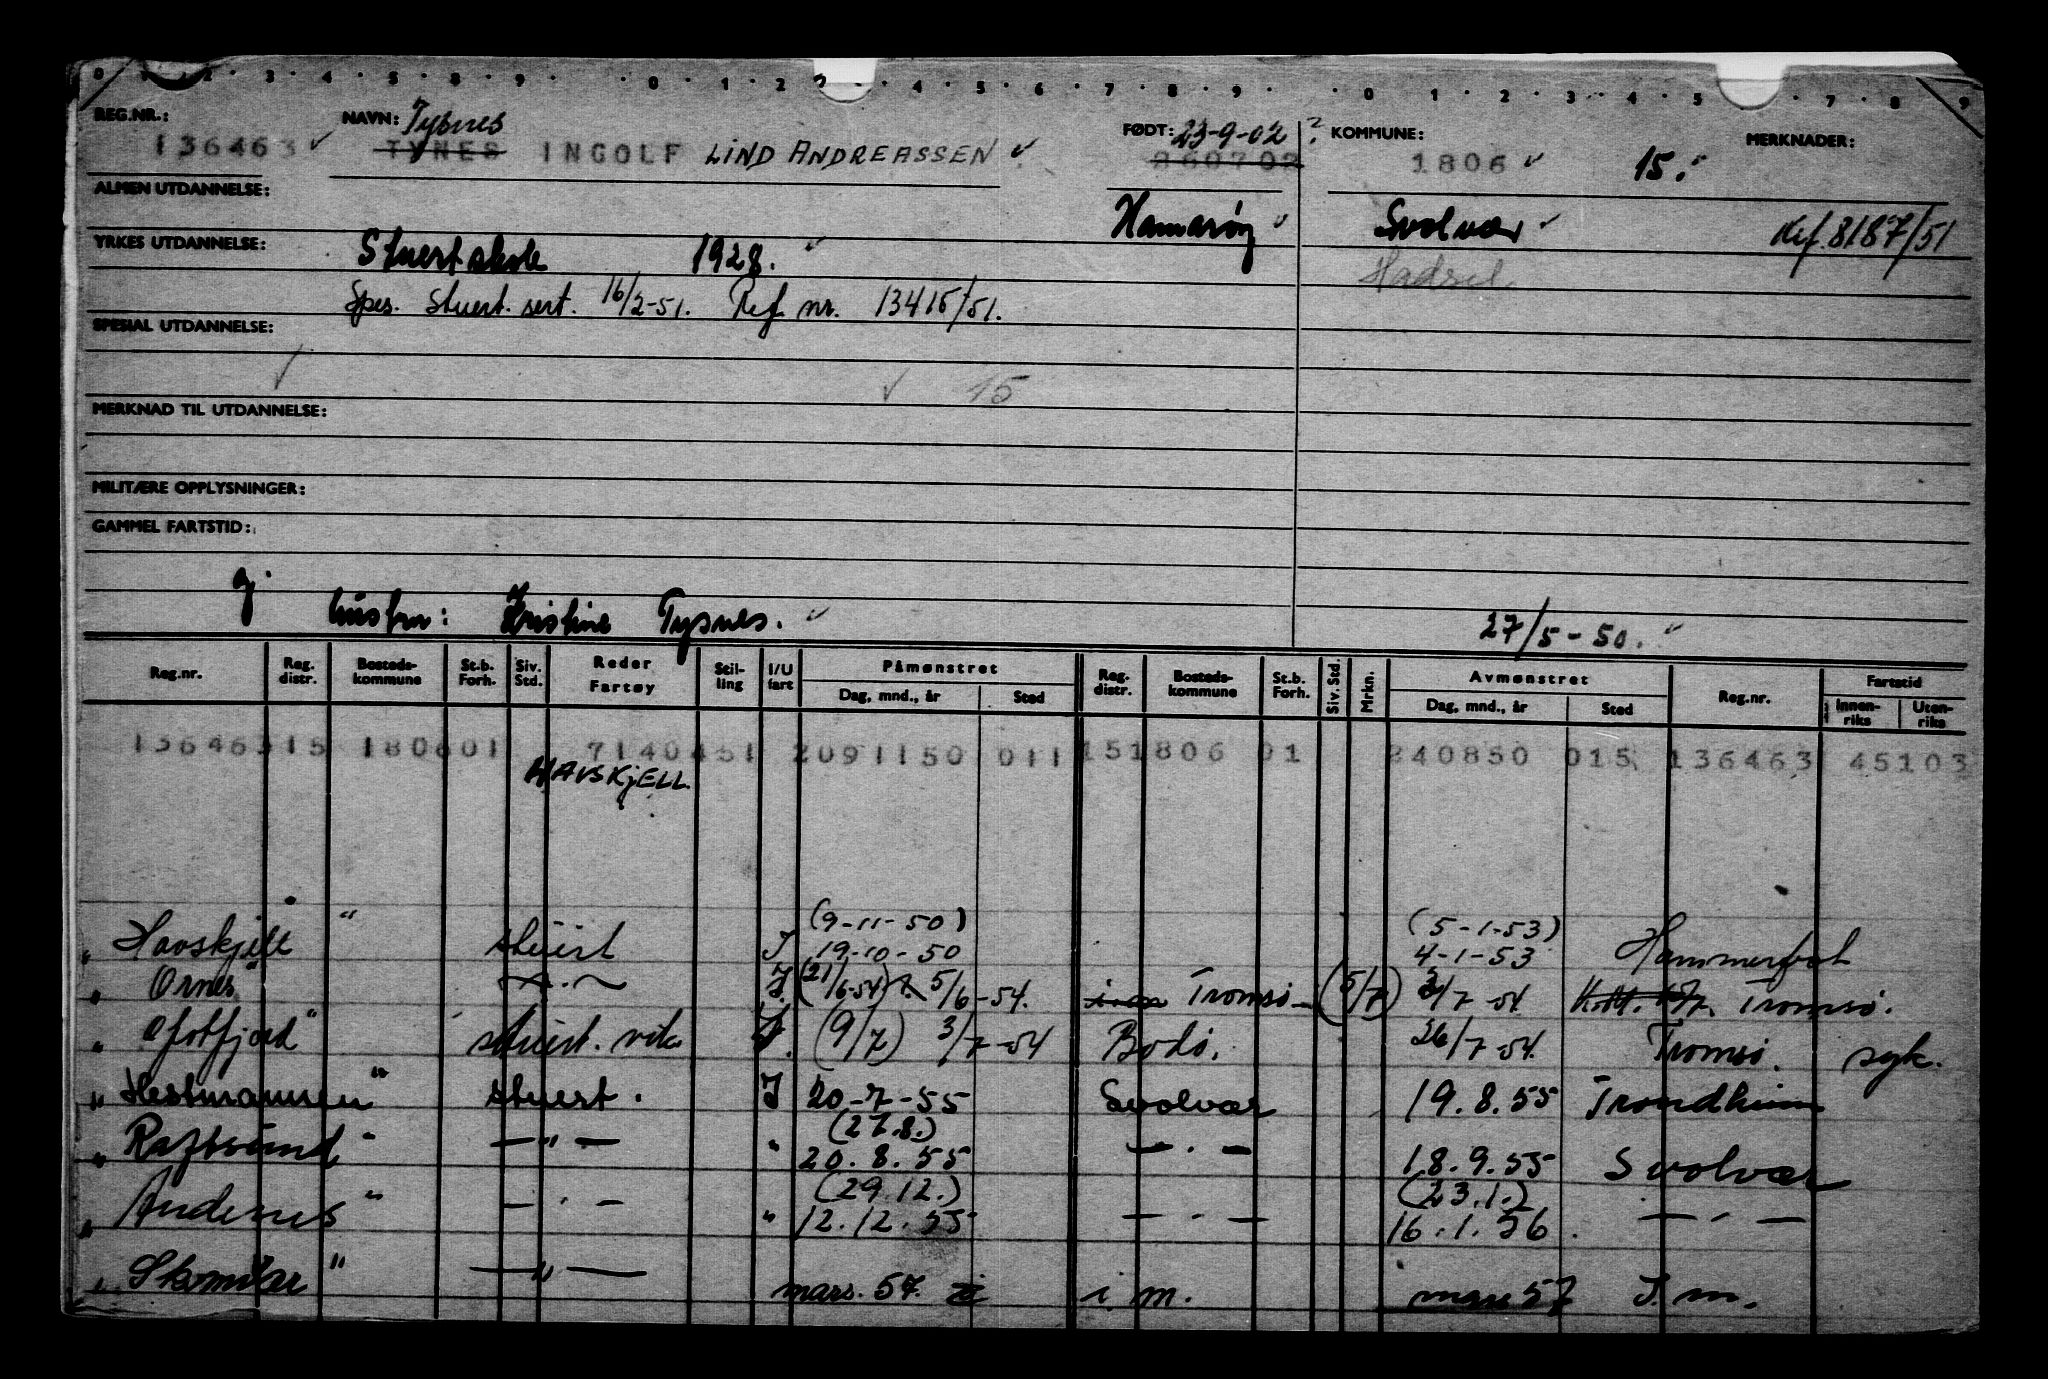 0 · 1 · 2 · 3 · 4 · 5 · 8 · 9 · · 0 · 1 · 2 · 3 · 4 · 5 · 6 · 7 · 8 · 9 · · 0 · 1 · 2 · 3 · 4 · 5 · 7 · 8 · 9
REG.NR.: NAVN: Tysnes FØDT: 23-9-02 ? KOMMUNE: MERKNADER:
136463 ✓ TYNES INGOLF LIND ANDREASSEN ✓ 260702 1806 ✓ 15.
ALMEN UTDANNELSE:
Hamarøy ✓ Svolvær ✓ Ref. 8187/51
YRKES UTDANNELSE: Stuertskole 1928. ✓
Hadsel
Spes. Stuert. sert. 16/2-51. Ref. nr. 13415/51.
SPESIAL UTDANNELSE:
✓ ✓ 15
MERKNAD TIL UTDANNELSE:
MILITÆRE OPPLYSNINGER:
GAMMEL FARTSTID:
g. hustru: Kristine Tysnes. ✓ 27/5-50. ✓
Reg.nr. Reg. distr. Bosteds-kommune St.b. Forh. Siv. Std. Reder Fartøy Stil-ling I/U fart Påmønstret Dag, mnd., år Sted Reg. distr. Bosteds-kommune St.b. Forh. Siv. Std. Mrkn. Avmønstret Dag, mnd., år Sted Reg.nr. Fartstid Innen-riks Uten-riks
13646315 180601 7140451 2091150 011 151806 01 240850 015 136463 45103
HAVSKJELL.
(9-11-50) (5-1-53)
"Havskjell" stuert I 19-10-50 4-1-53 Hammerfest
"Ornes" — . — I. (21/6-54) 5/6-54. Tromsø (5/7) 3/7-54 Tromsø.
"Ofotfjord" stuert. vik. I. (9/7) 3/7-54 Bodø. 26/7-54. Tromsø. syk.
"Hestmannen" stuert. I 20-7-55 Svolvær 19.8.55 Trondheim
(27.8.)
"Raftsund" — " — " 20.8.55 — . — 18.9.55 Svolvær
(29.12.) (23.1.)
"Andenes" — . — " 12.12.55 — . — 16.1.56. — . —
"Skomvær" — " — mars. 57. i. m. mars 57 I. m.